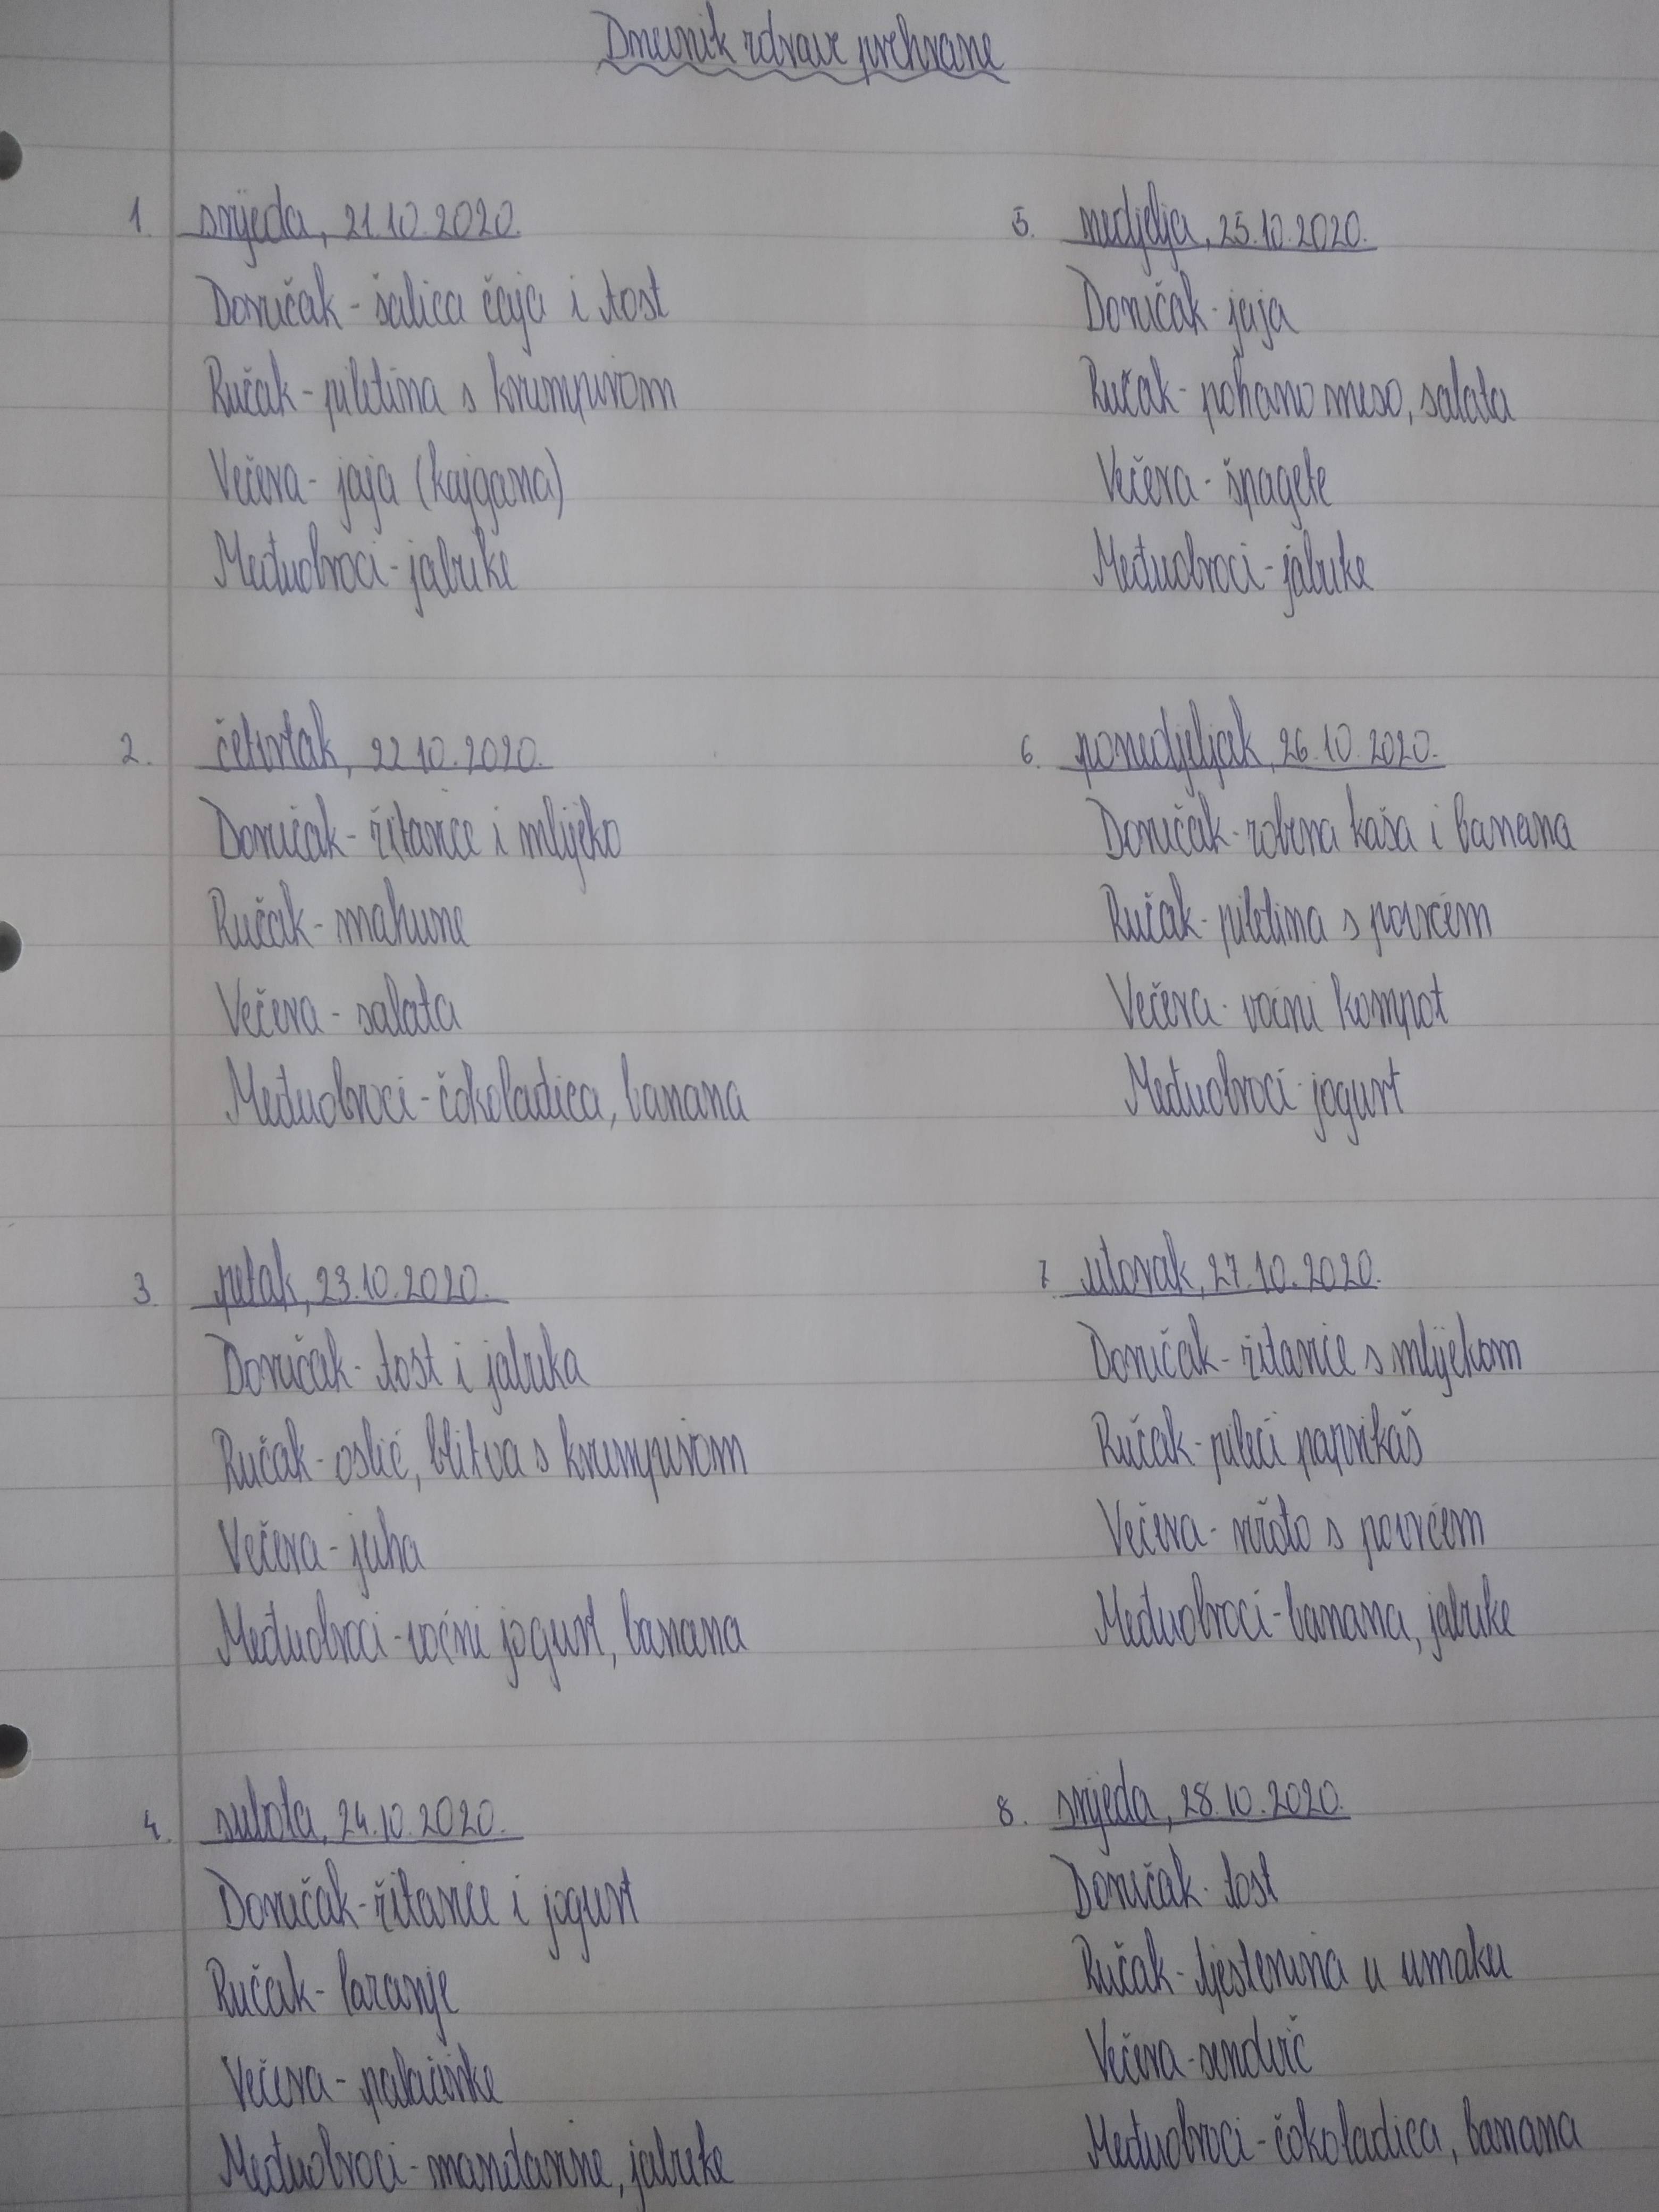 Dnevnik zdrave prehrane
1. srijeda, 21.10.2020.
Doručak - šalica čaja i tost
Ručak - piletina s krumpirom
Večera - jaja (kajgana)
Međuobroci - jabuke
2. četvrtak, 22.10.2020.
Doručak - žitarice i mlijeko
Ručak - mahune
Večera - salata
Međuobroci - čokoladica, banana
3. petak, 23.10.2020.
Doručak - tost i jabuka
Ručak - oslić, blitva s krumpirom
Večera - juha
Međuobroci - voćni jogurt, banana
4. subota, 24.10.2020.
Doručak - žitarice i jogurt
Ručak - lazanje
Večera - palačinke
Međuobroci - mandarine, jabuke
5. nedjelja, 25.10.2020.
Doručak - jaja
Ručak - pohano meso, salata
Večera - špagete
Međuobroci - jabuke
6. ponedjeljak, 26.10.2020.
Doručak - zobena kaša i banana
Ručak - piletina s povrćem
Večera - voćni kompot
Međuobroci - jogurt
7. utorak, 27.10.2020.
Doručak - žitarice s mlijekom
Ručak - pileći paprikaš
Večera - rižoto s povrćem
Međuobroci - banana, jabuke
8. srijeda, 28.10.2020.
Doručak - tost
Ručak - tjestenina u umaku
Večera - sendvič
Međuobroci - čokoladica, banana